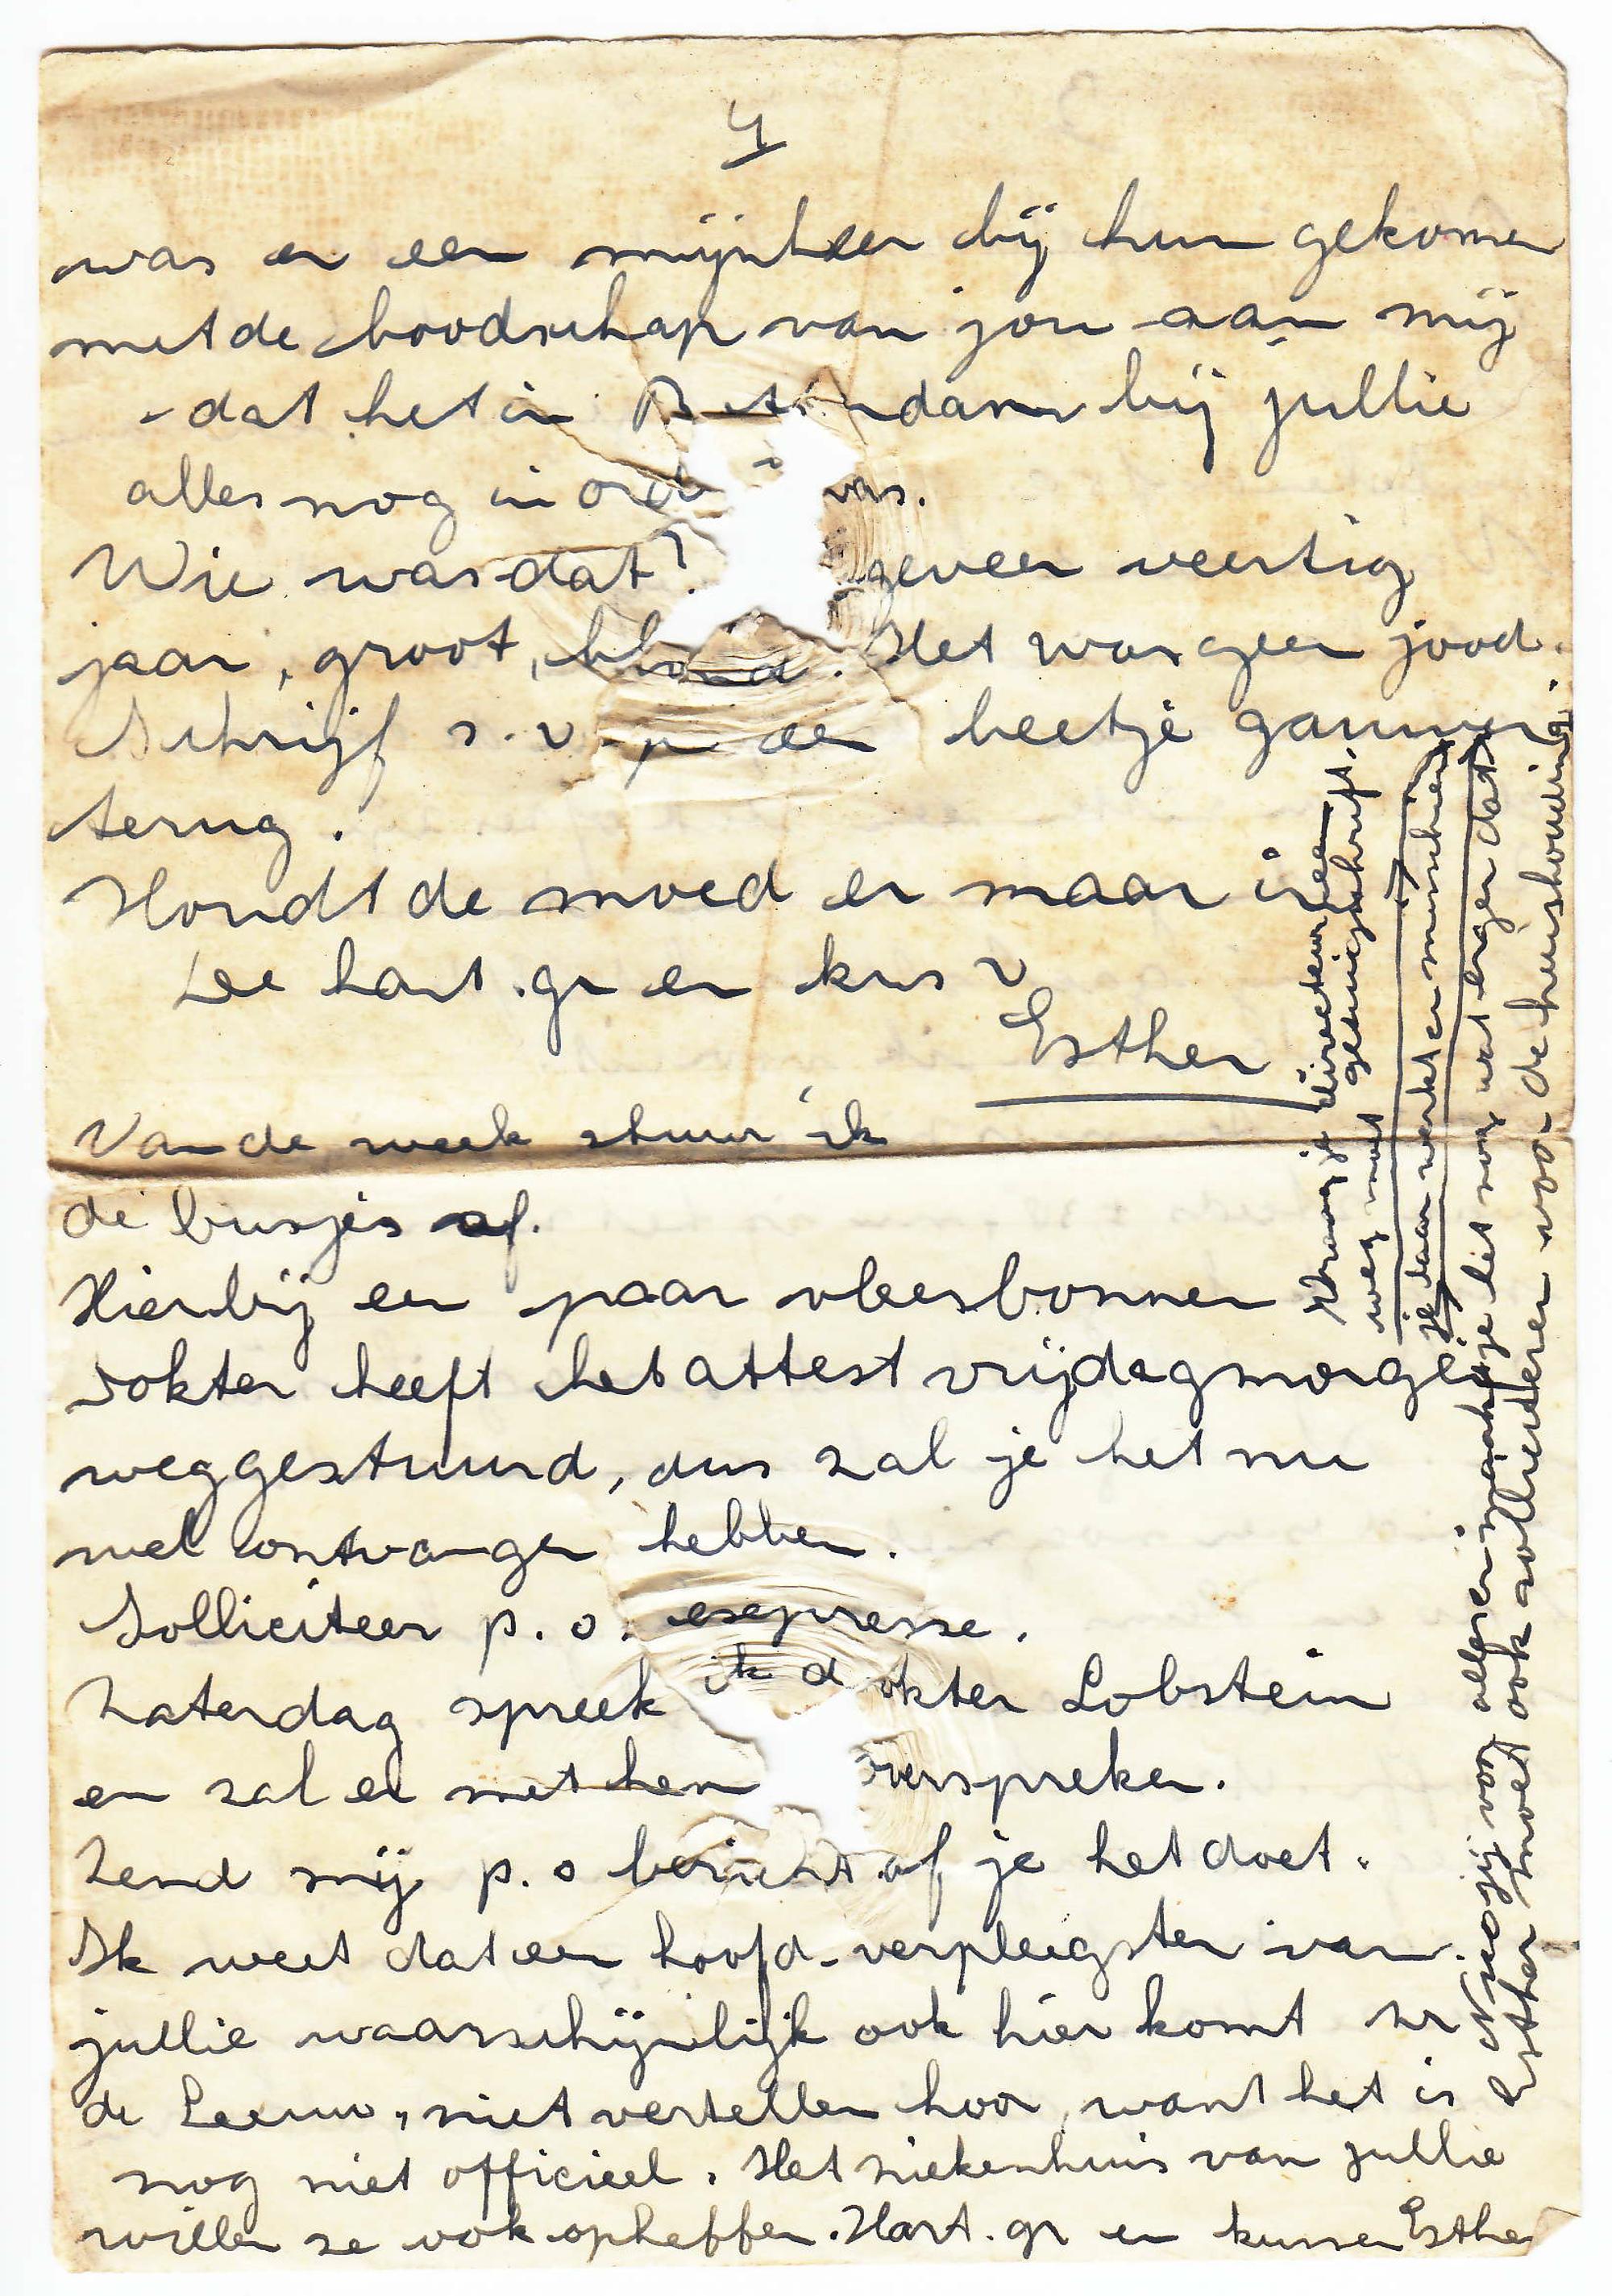 4
was er een mijnheer bij hun gekomen
met de boodschap van jou aan mij
- dat het in dam bij jullie
alles nog in ord was.
Wie was dat? geveer veertig
jaar, groot, blond. Het was geen jood.
Schrijf s.v.p een beetje gauw
terug.
Houdt de moed er maar in
Lee hart. gr en kus v
Esther
Van de week stuur ik
de busjes af.
Hierbij een paar vleesbonnen
Dokter heeft het attest vrijdagmorgen
weggestuurd, dus zal je het nu
wel ontvangen hebben.
Solliciteer p.o. expresse.
Zaterdag spreek ik dokter Lobstein
en zal er met hem overspreken.
Zend mij p.o bericht of je het doet.
Ik weet dat een hoofd-verpleegster van
jullie waarschijnlijk ook hier komt zr
de Leeuw, niet vertellen hoor, want het is
nog niet officieel. Het ziekenhuis van jullie
willen ze ook opheffen. Hart. gr en kussen Esther
Vraag je directeur een
weg met getuigschrift.
je daar werkt en misschien
Nu jij voor alleen maak je het nog wat erger dat
Esther moet ook solliciteren voor de huishouding